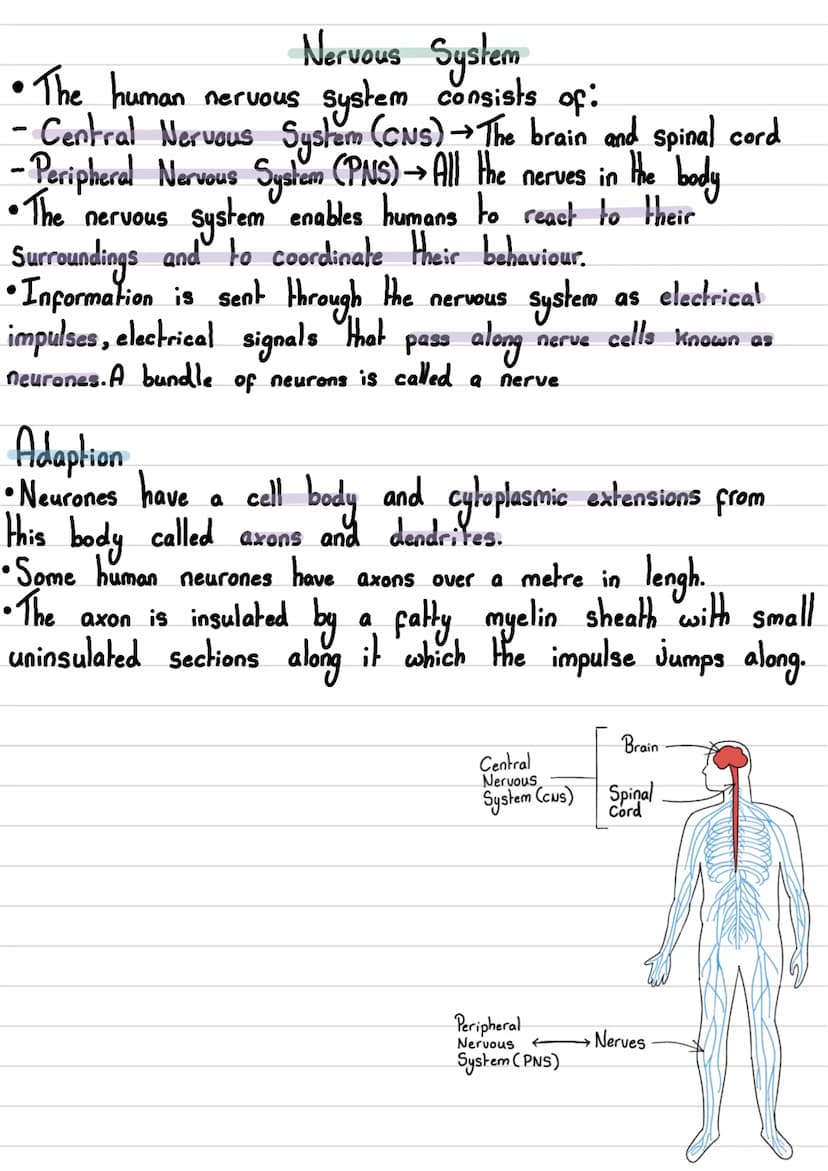 Nervous System
• The human nervous system consists of:
- Central Nervous System (CNS) → The brain and spinal cord
- Peripheral Nervous System (PNS) → All the nerves in the body
• The nervous system enables humans to react to their
surroundings and to coordinate their behaviour.
• Information is sent through the nervous system as electrical
impulses, electrical signals that pass along nerve cells known as
neurones. A bundle of neurons is called a nerve
Adaption
• Neurones have a cell body and cytoplasmic extensions from
this body called axons and dendrites.
• Some human neurones have axons over a metre in lengh.
• The axon is insulated by a fatty myelin sheath with small
uninsulated sections along it which the impulse jumps along.
Central
Nervous
System (CNS)
Brain
Spinal
Cord
Peripheral
Nervous
System (PNS)
Nerves